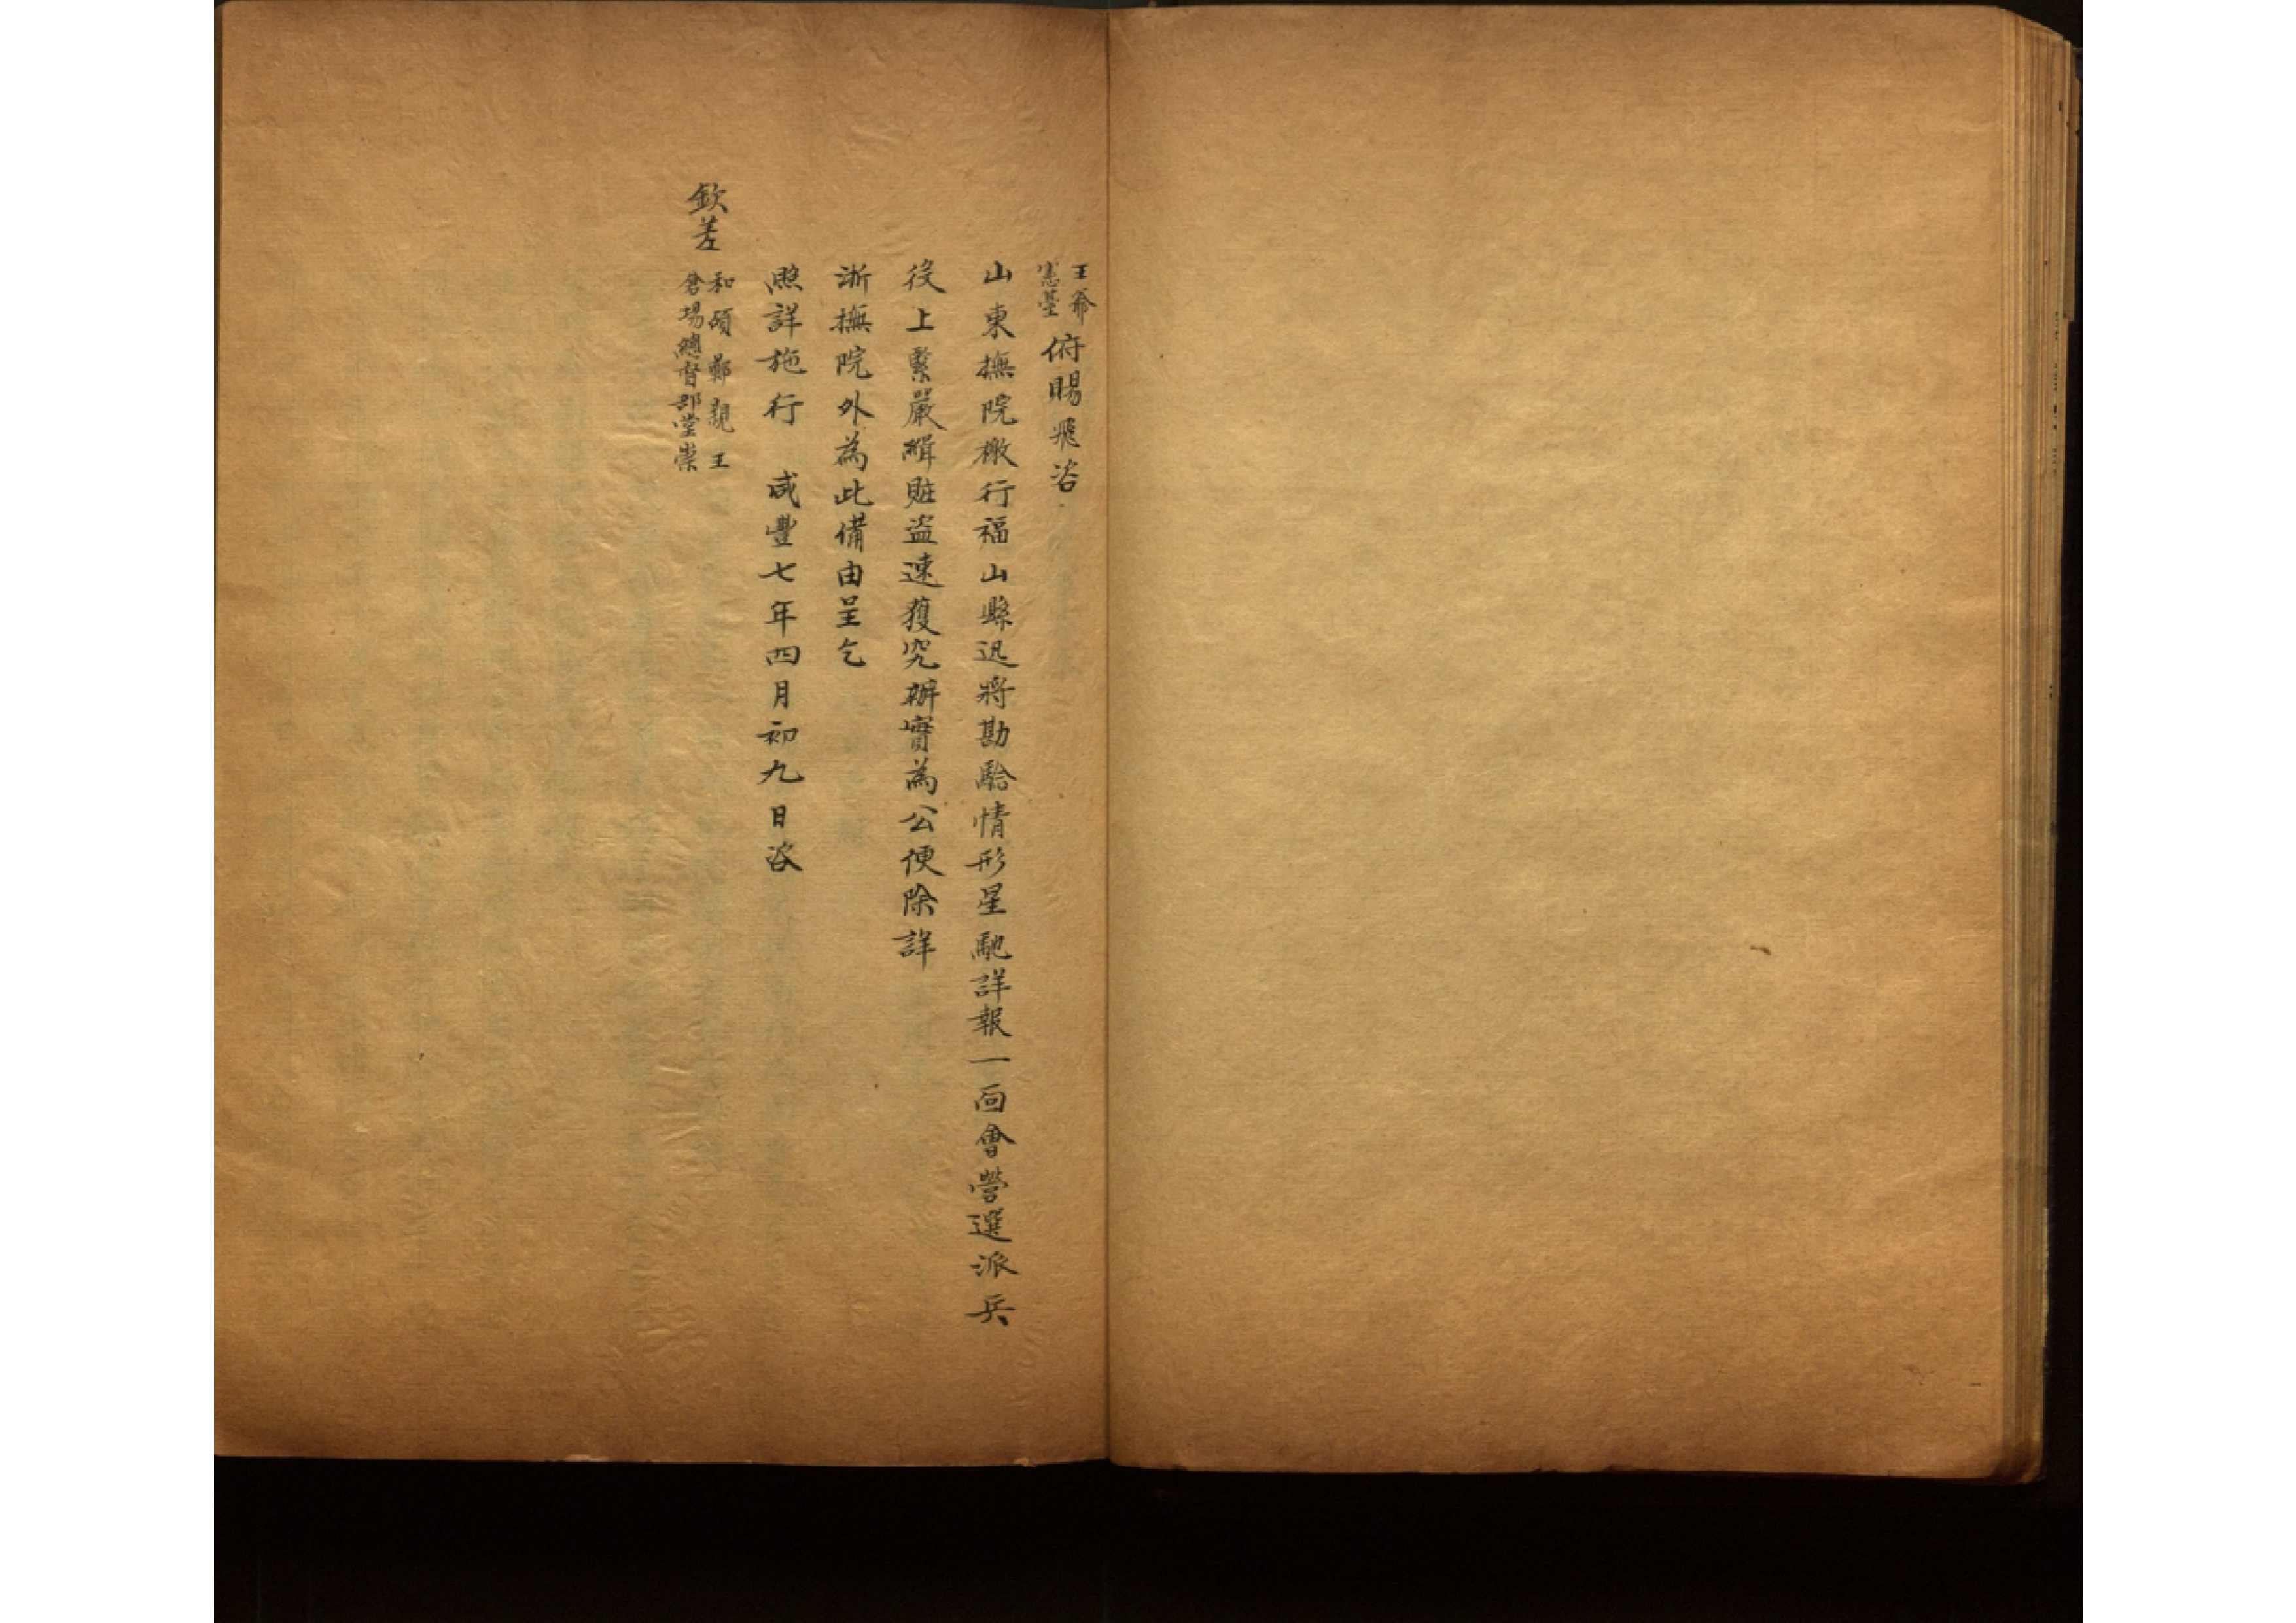 王爺憲臺俯賜飛咨
山東撫院檄行福山縣迅將勘騐情形星馳詳報一面會營選派兵
役上緊嚴緝賍盗速獲究辦實為公便除詳
浙撫院外為此備由呈乞
照詳施行　咸豐七年四月初九日咨
欽差和碩鄭親王倉場總督部堂崇